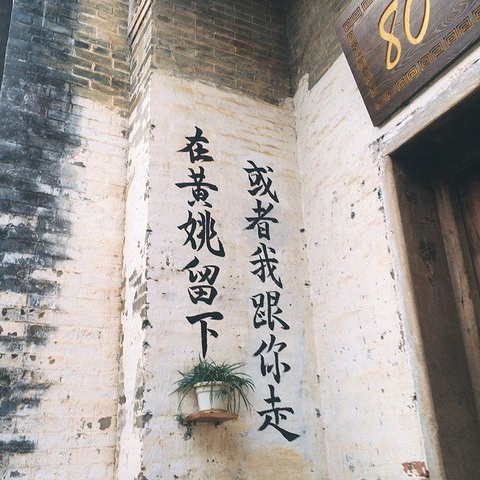 80
在黄姚留下
或者我跟你走